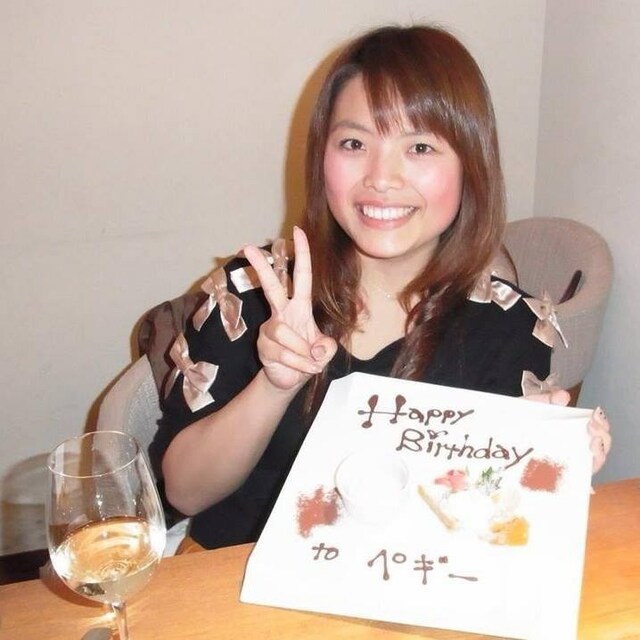 Happy
Birthday
to ペギー